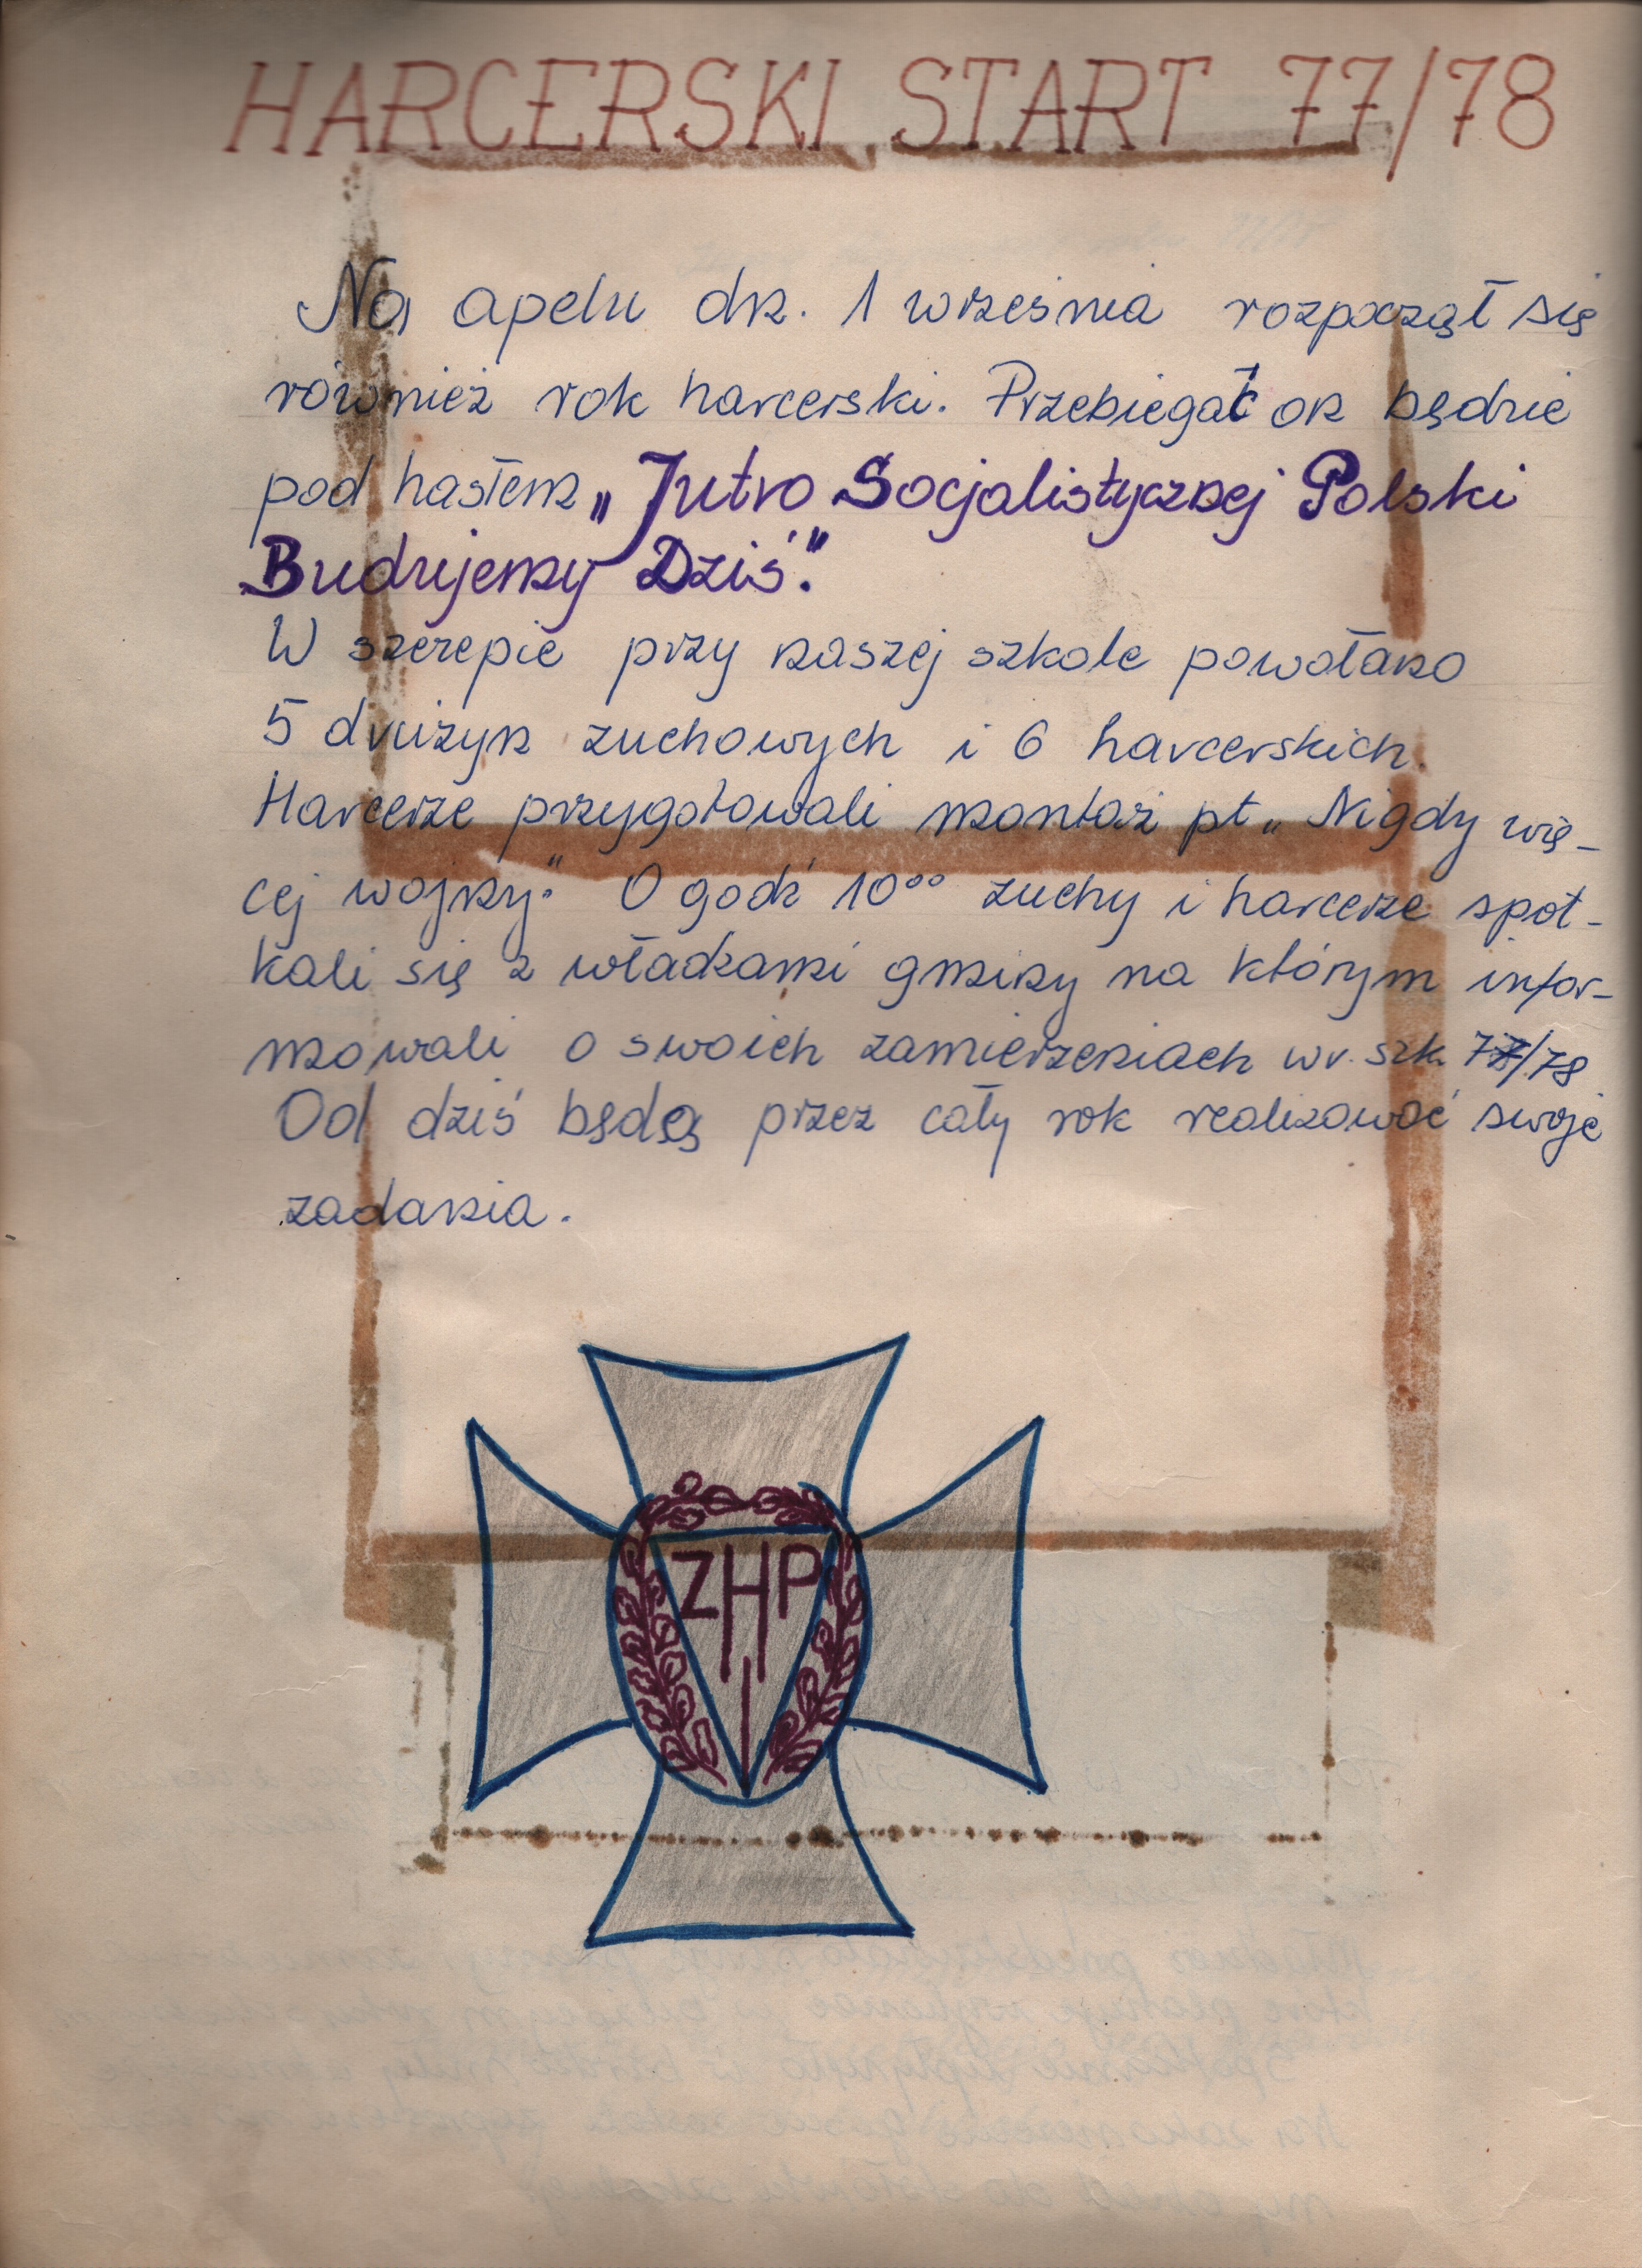 HARCERSKI START 77/78
Na apelu dn. 1 września rozpoczął się
również rok harcerski. Przebiegać on będzie
pod hasłem „Jutro Socjalistycznej Polski
Budujemy Dziś."
W szczepie przy naszej szkole powołano
5 drużyn zuchowych i 6 harcerskich.
Harcerze przygotowali montaż pt „Nigdy wię-
cej wojny." O godź 10⁰⁰ zuchy i harcerze spot-
kali się z władzami gminy na którym infor-
mowali o swoich zamierzeniach w r. szk 77/78
Od dziś będą przez cały rok realizować swoje
zadania.
ZHP